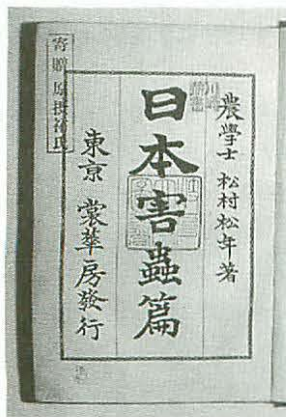 農學士 松村松年著
日本害蟲篇
東京 裳華房發行
寄贈原撰祐氏